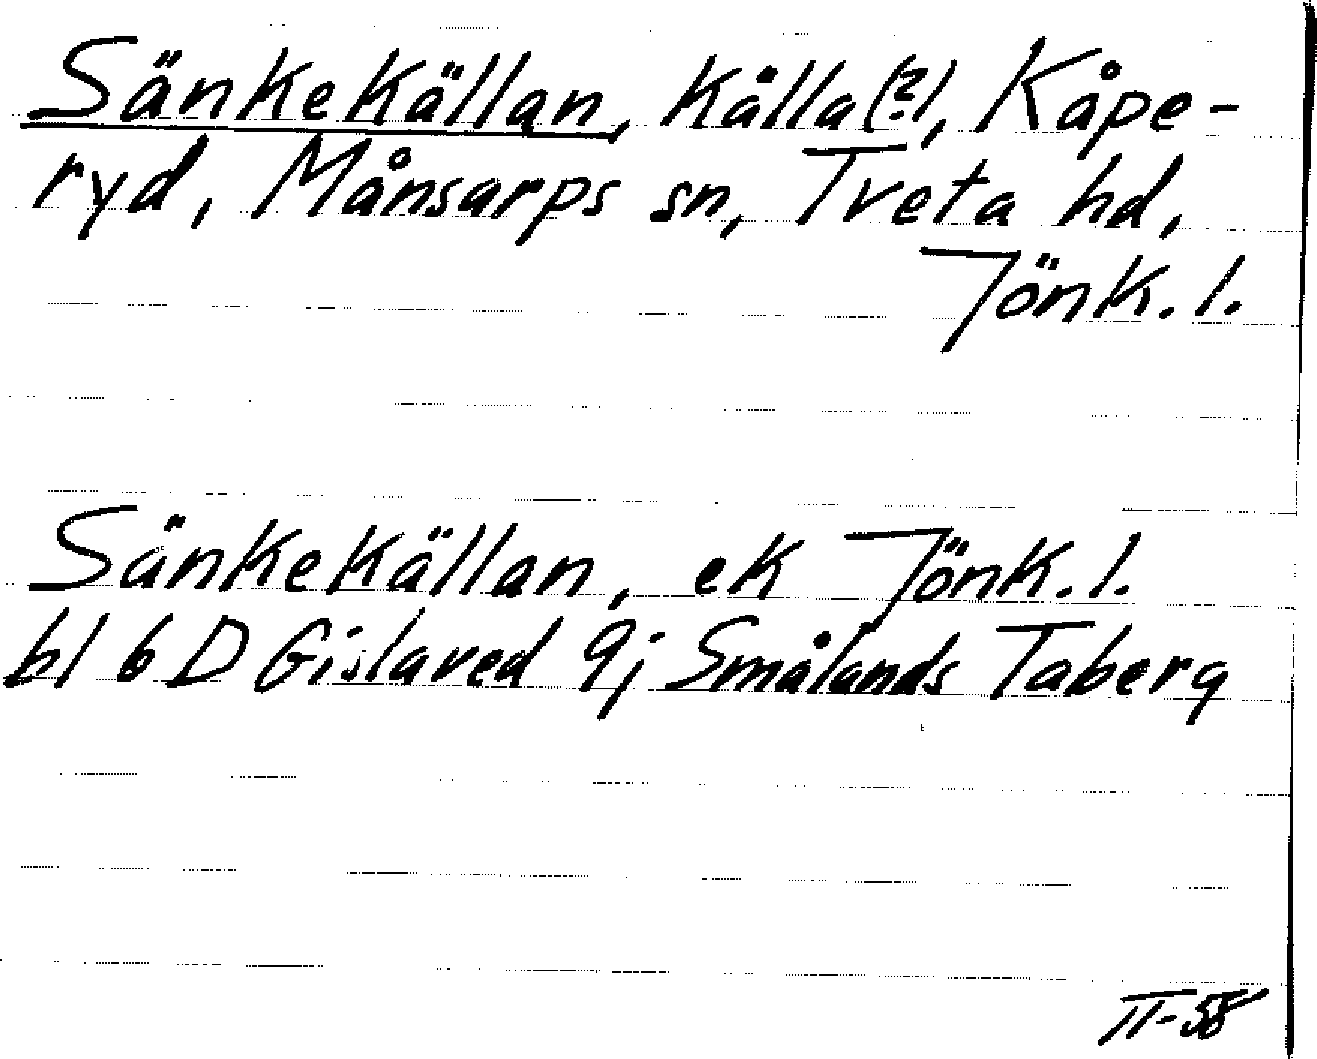 Sänkekällan, källa(?), Kåpe-
ryd, Månsarps sn, Tveta hd,
Jönk. l.
Sänkekällan, ek Jönk. l.
bl 6 D Gislaved 9j Smålands Taberg
II-58